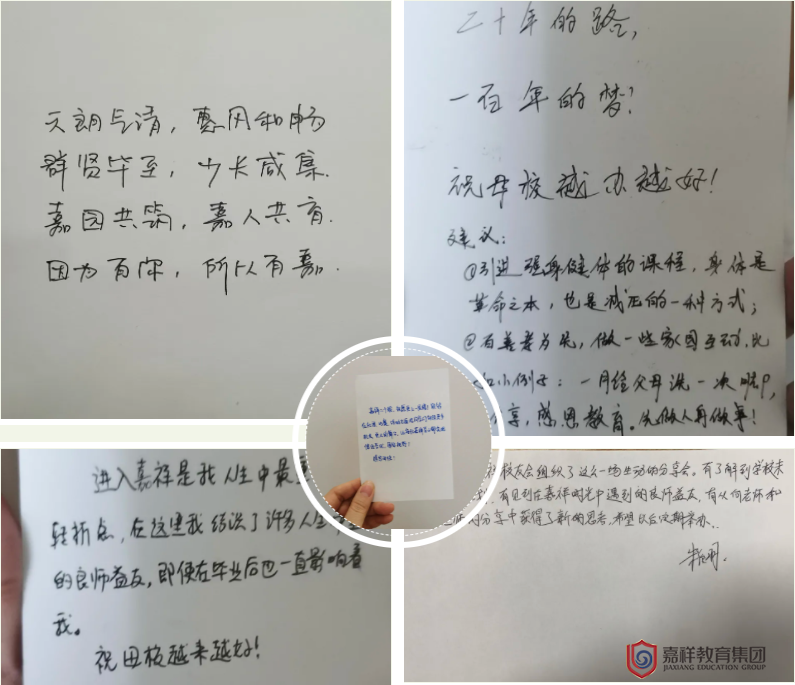 天朗气清，惠风和畅
群贤毕至，少长咸集.
嘉园共筑，嘉人共育.
因为有你，所以有嘉.
二十年的路，
一百年的梦！
祝母校越办越好！
建议：
①引进强身健体的课程，身体是
革命之本，也是减压的一种方式；
②百善孝为先，做一些家园互动，比
如小例子：一月给父母洗一次脚，
享，感恩教育。先做人再做事！
进入嘉祥是我人生中最
转折点，在这里我结识了许多人生
的良师益友，即便在毕业后也一直影响着
我。
祝母校越来越好！
校友会组织了这么一场生动的分享会。有了解到学校未
有见到在嘉祥时光中遇到的良师益友，有从何老师和
的分享中获得了新的思考，希望以后定期举办..
嘉祥教育集团
JIAXIANG EDUCATION GROUP